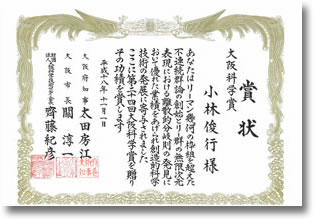 賞状
大阪科学賞
小林俊行様
あなたはリーマン幾何の枠組を超えた
不連続群論の創始とリー群の無限次元
表現における離散的分岐則の発見に
おいて優れた業績をあげられ創造的科学
技術の発展に寄与されました
ここに第二十四回大阪科学賞を贈り
その功績を賞します
平成十八年十一月一日
大阪府知事 太田房江
大阪市長 關淳一
齊藤紀彦